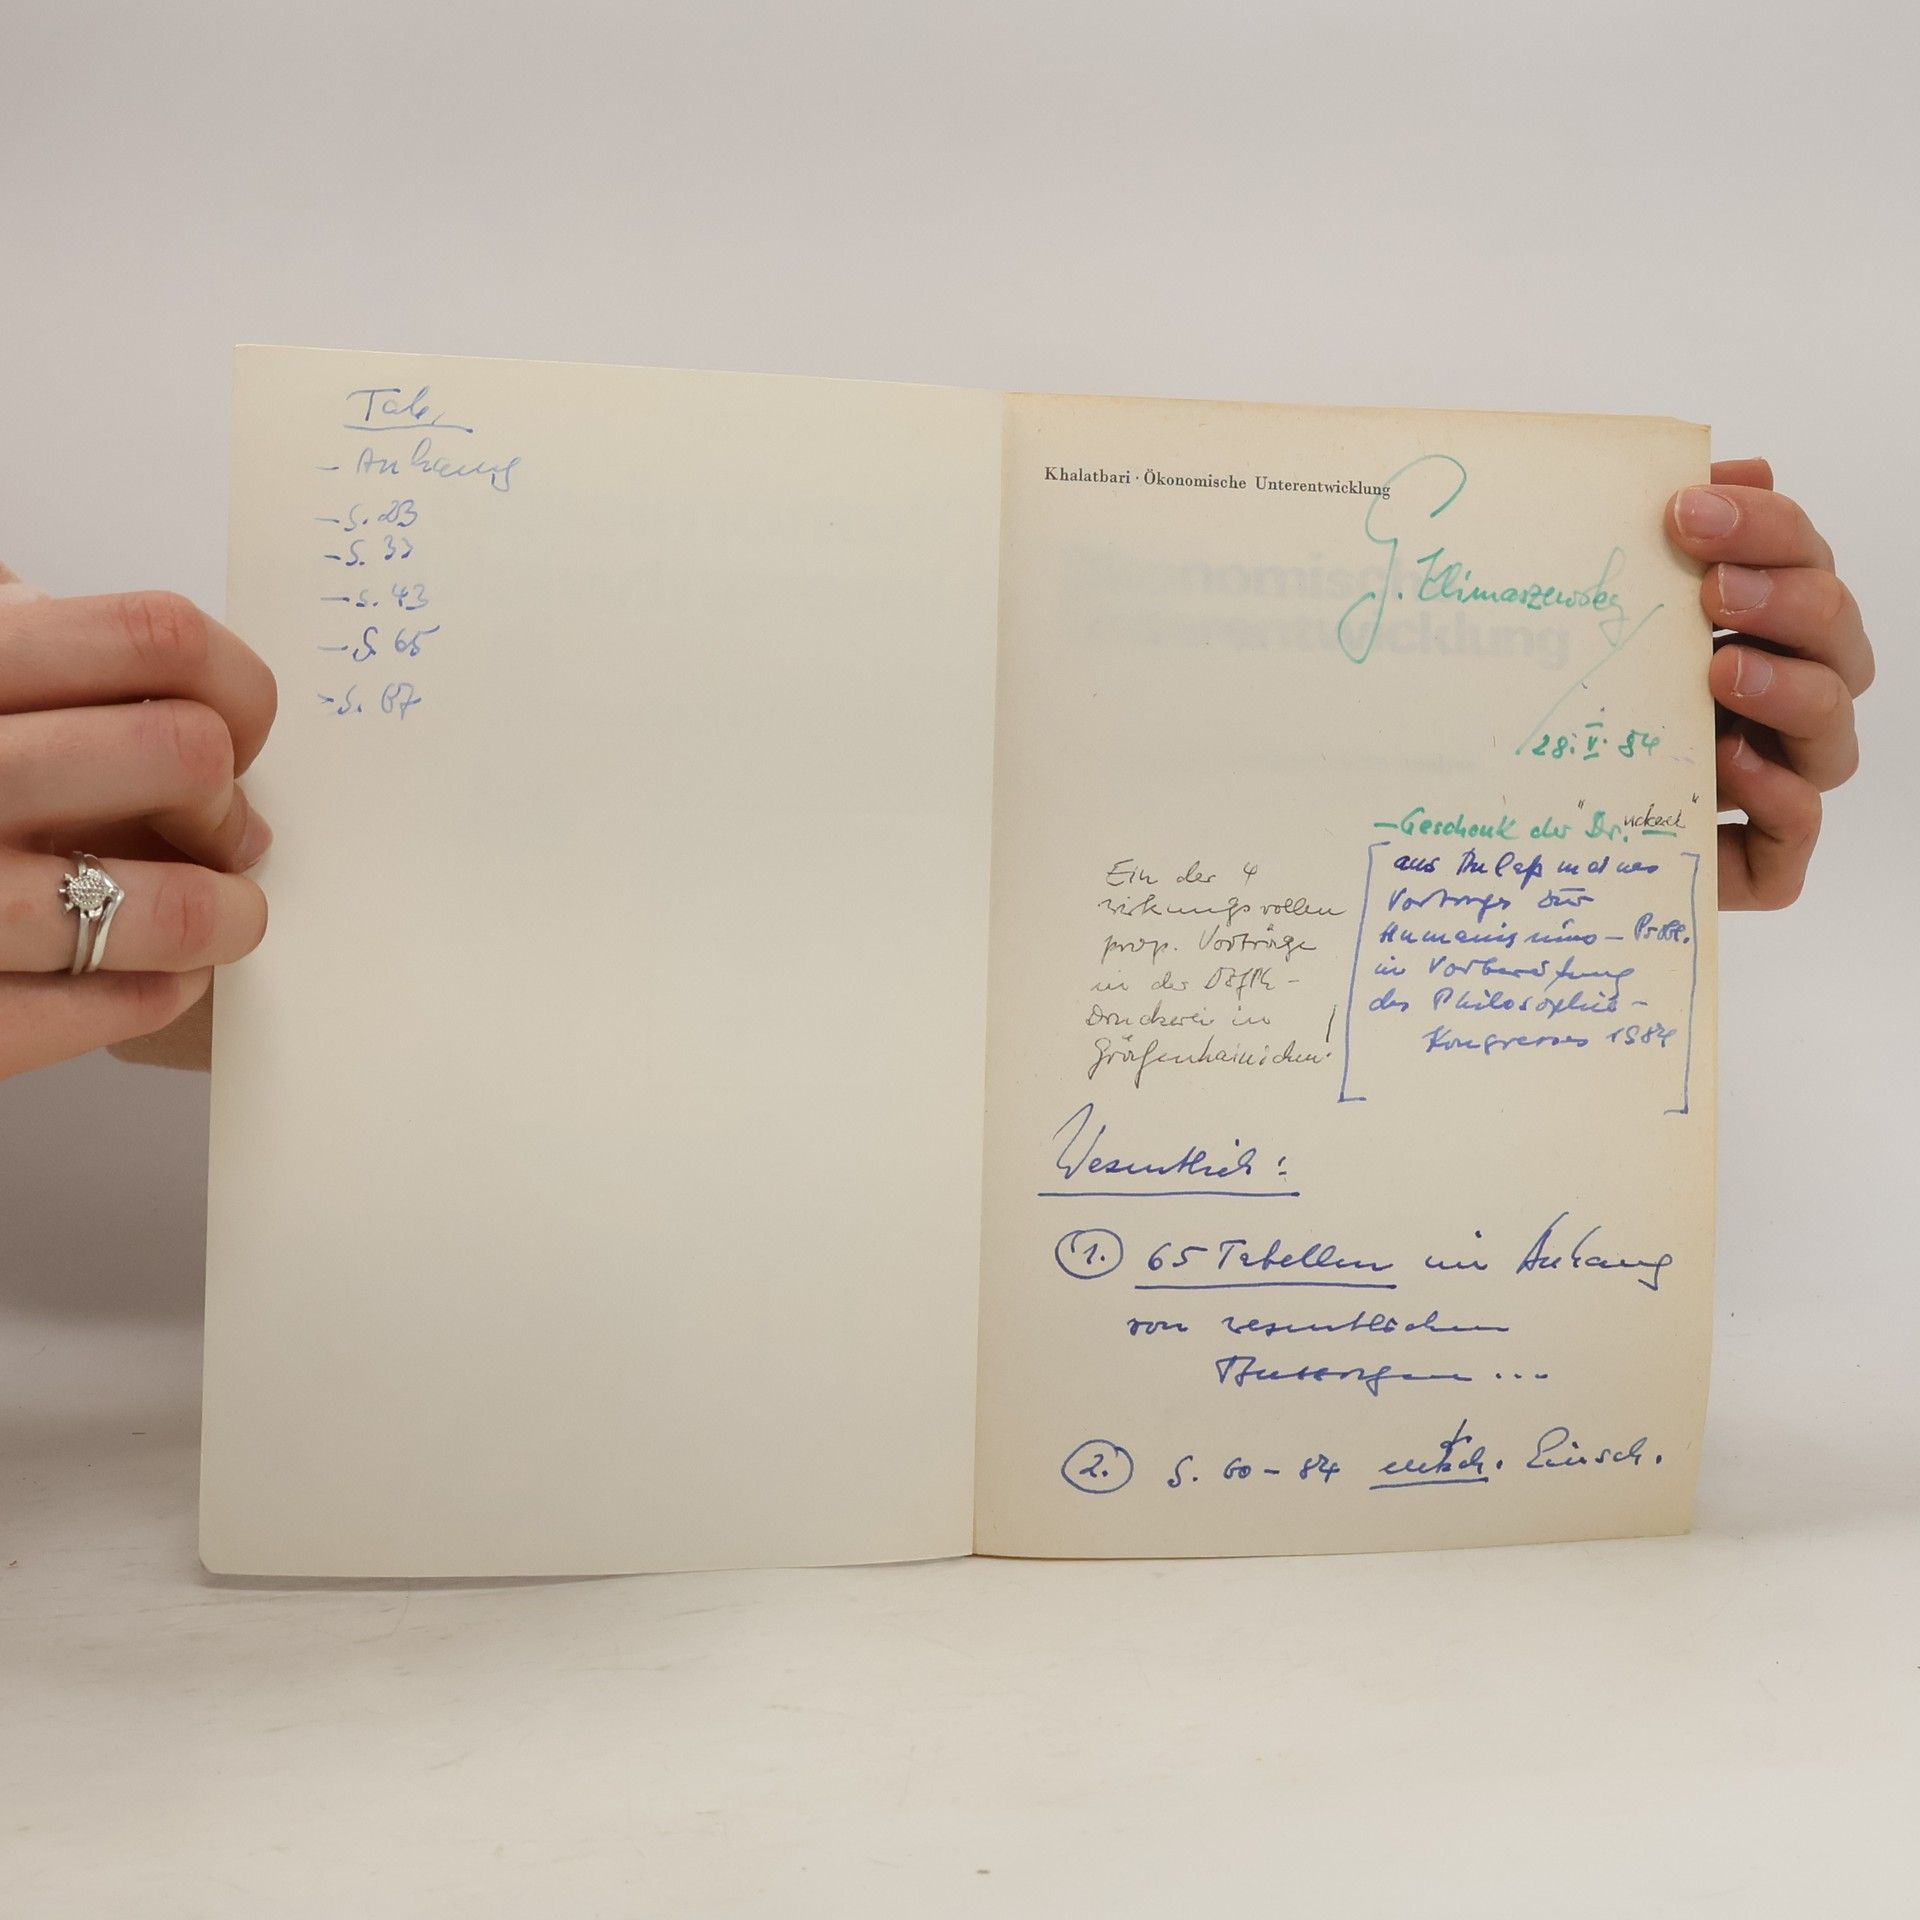 Tab.
- Anhang
- S. 23
- S. 33
- S. 43
- S. 65
- S. 67
Khalatbari · Ökonomische Unterentwicklung
G. Klimaszewsky
28. V. 84
- Geschenk der "Druckerei"
aus Anlaß meines
Vortrags zur
Humanismus - Probl.
in Vorbereitung
des Philosophie-
Kongresses 1984
Ein der 4
wirkungsvollen
prop. Vorträge
in der
Druckerei in
Gräfenhainichen!
Wesentlich:
1. 65 Tabellen im Anhang
von wesentlichen
Aussagen ...
2. S. 60 - 84 Einsch.